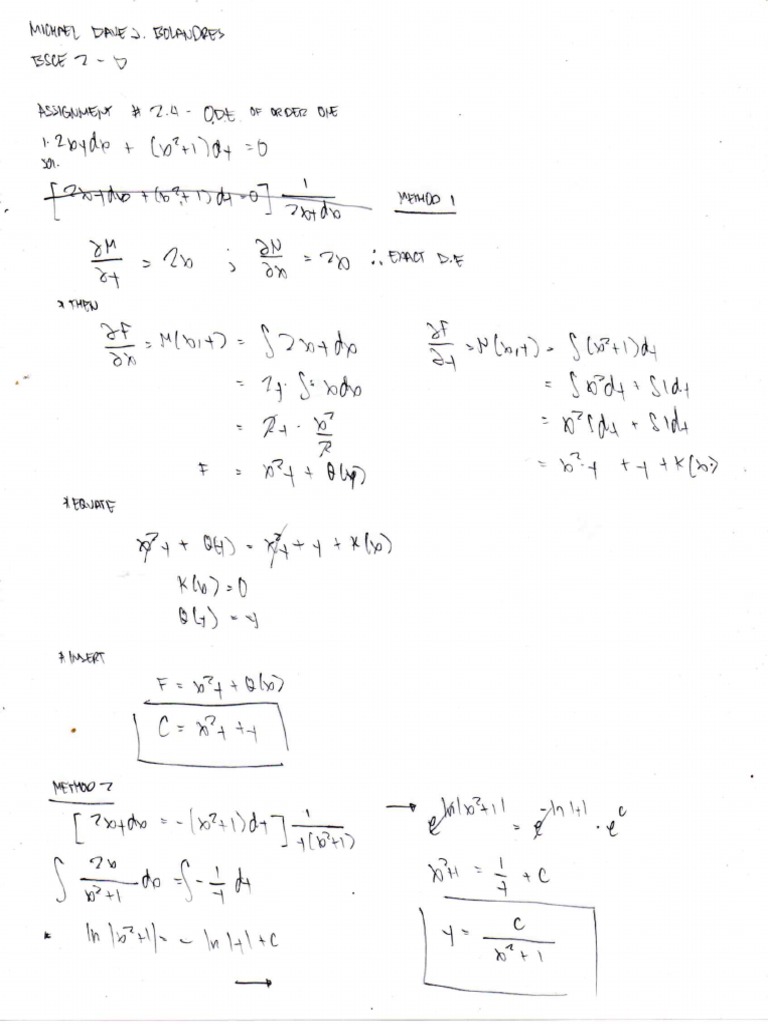 MICHAEL DAVE J. BOLANDRES
BSCE 2 - D
ASSIGNMENT # 2.4 - O.D.E. OF ORDER ONE
1. 2xydx + (x²+1)dy = 0
sol.
[2xydx + (x²+1)dy = 0] 1/(2xydx)
METHOD 1
∂M/∂y = 2x ; ∂N/∂x = 2x ∴ EXACT D.E
* THEN
∂F/∂x = M(x,y) = ∫2xydx
= 2y · ∫ xdx
= 2y · x²/2
F = x²y + Q(y)
∂F/∂y = N(x,y) = ∫(x²+1)dy
= ∫x²dy + ∫1dy
= x²∫dy + ∫1dy
= x²·y + y + K(x)
* EQUATE
x²y + Q(y) = x²y + y + K(x)
K(x) = 0
Q(y) = y
* INSERT
F = x²y + Q(x)
C = x²y + y
METHOD 2
[2xydx = -(x²+1)dy] 1/(y(x²+1))
∫ 2x/(x²+1) dx = ∫ - 1/y dy
* ln|x²+1| = - ln|y| + C
→
→ e^(ln|x²+1|) = e^(-ln|y|) · e^c
x²+1 = 1/y + C
y = C/(x²+1)